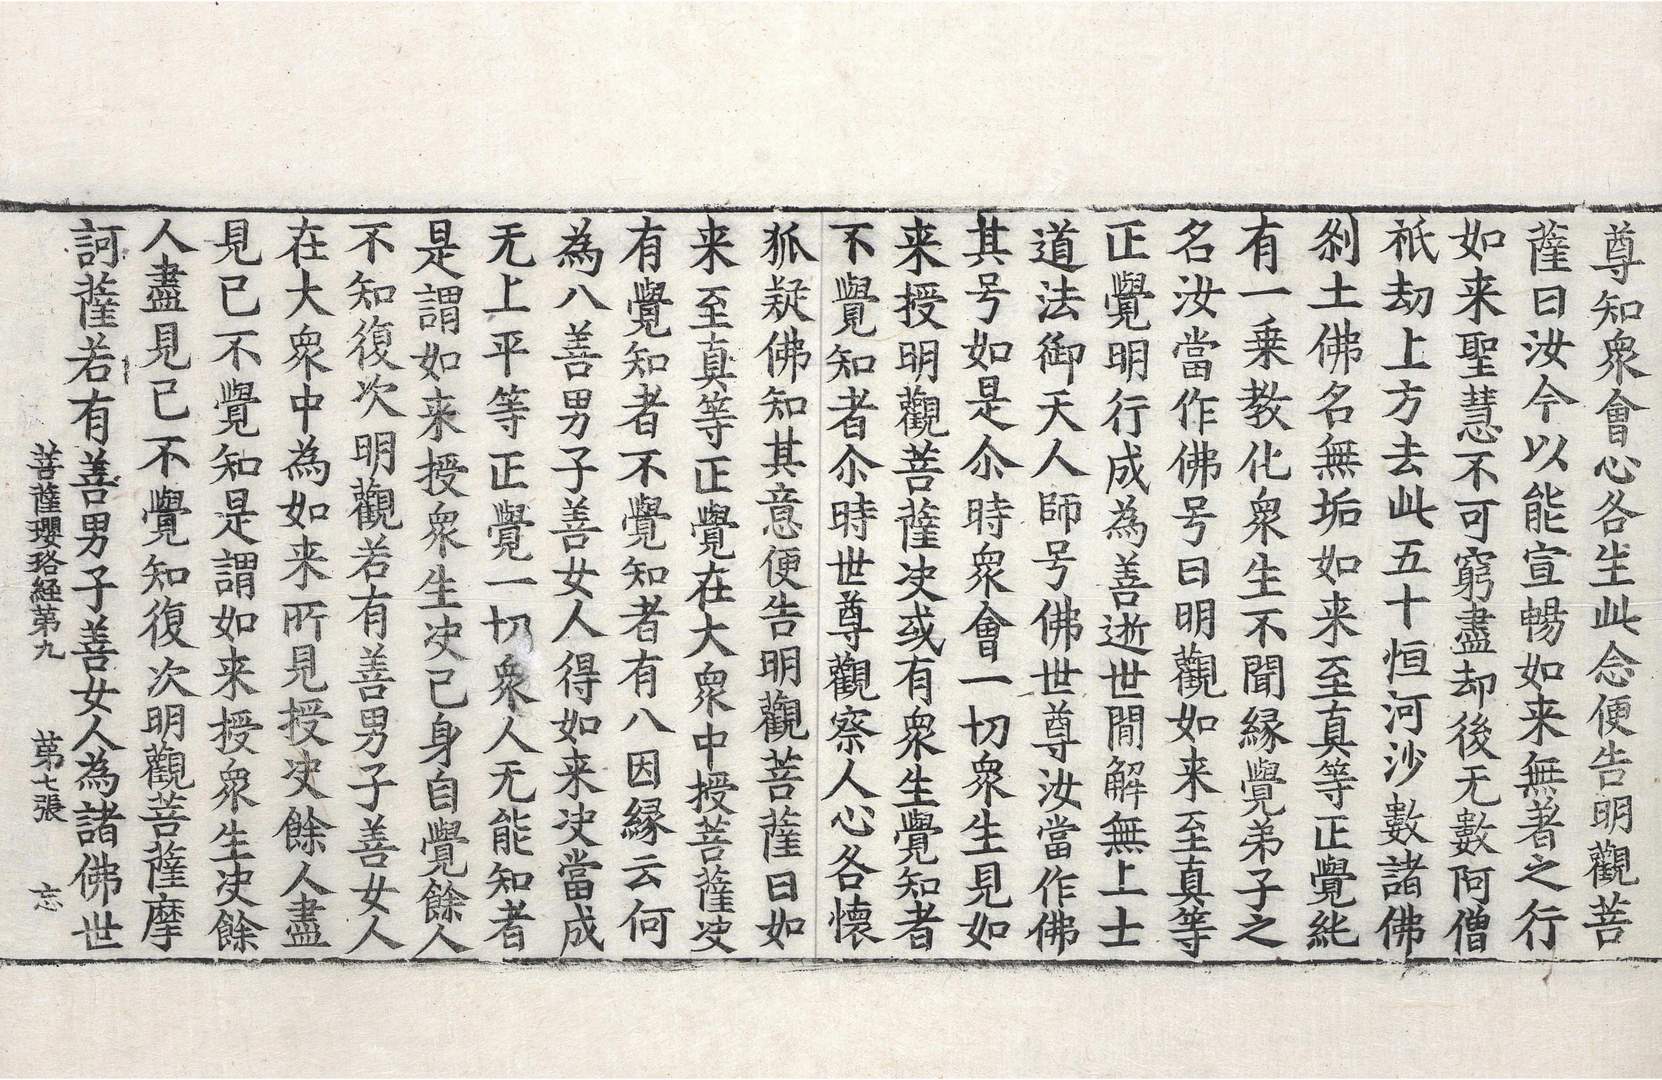 尊知衆會心各生此念便告明觀菩
薩曰汝今以能宣暢如来無著之行
如来聖慧不可窮盡却後无數阿僧
祇劫上方去此五十恒河沙數諸佛
刹土佛名無垢如来至真等正覺純
有一乗教化衆生不聞縁覺弟子之
名汝當作佛号曰明觀如来至真等
正覺明行成為善逝世間解無上士
道法御天人師号佛世尊汝當作佛
其号如是尒時衆會一切衆生見如
来授明觀菩薩决或有衆生覺知者
不覺知者尒時世尊觀察人心各懐
狐疑佛知其意便告明觀菩薩曰如
来至真等正覺在大衆中授菩薩决
有覺知者不覺知者有八因縁云何
為八善男子善女人得如来决當成
无上平等正覺一切衆人无能知者
是謂如来授衆生决己身自覺餘人
不知復次明觀若有善男子善女人
在大衆中為如来所見授决餘人盡
見已不覺知是謂如来授衆生决餘
人盡見已不覺知復次明觀菩薩摩
訶薩若有善男子善女人為諸佛世
菩薩瓔珞経苐九 苐七張 忘